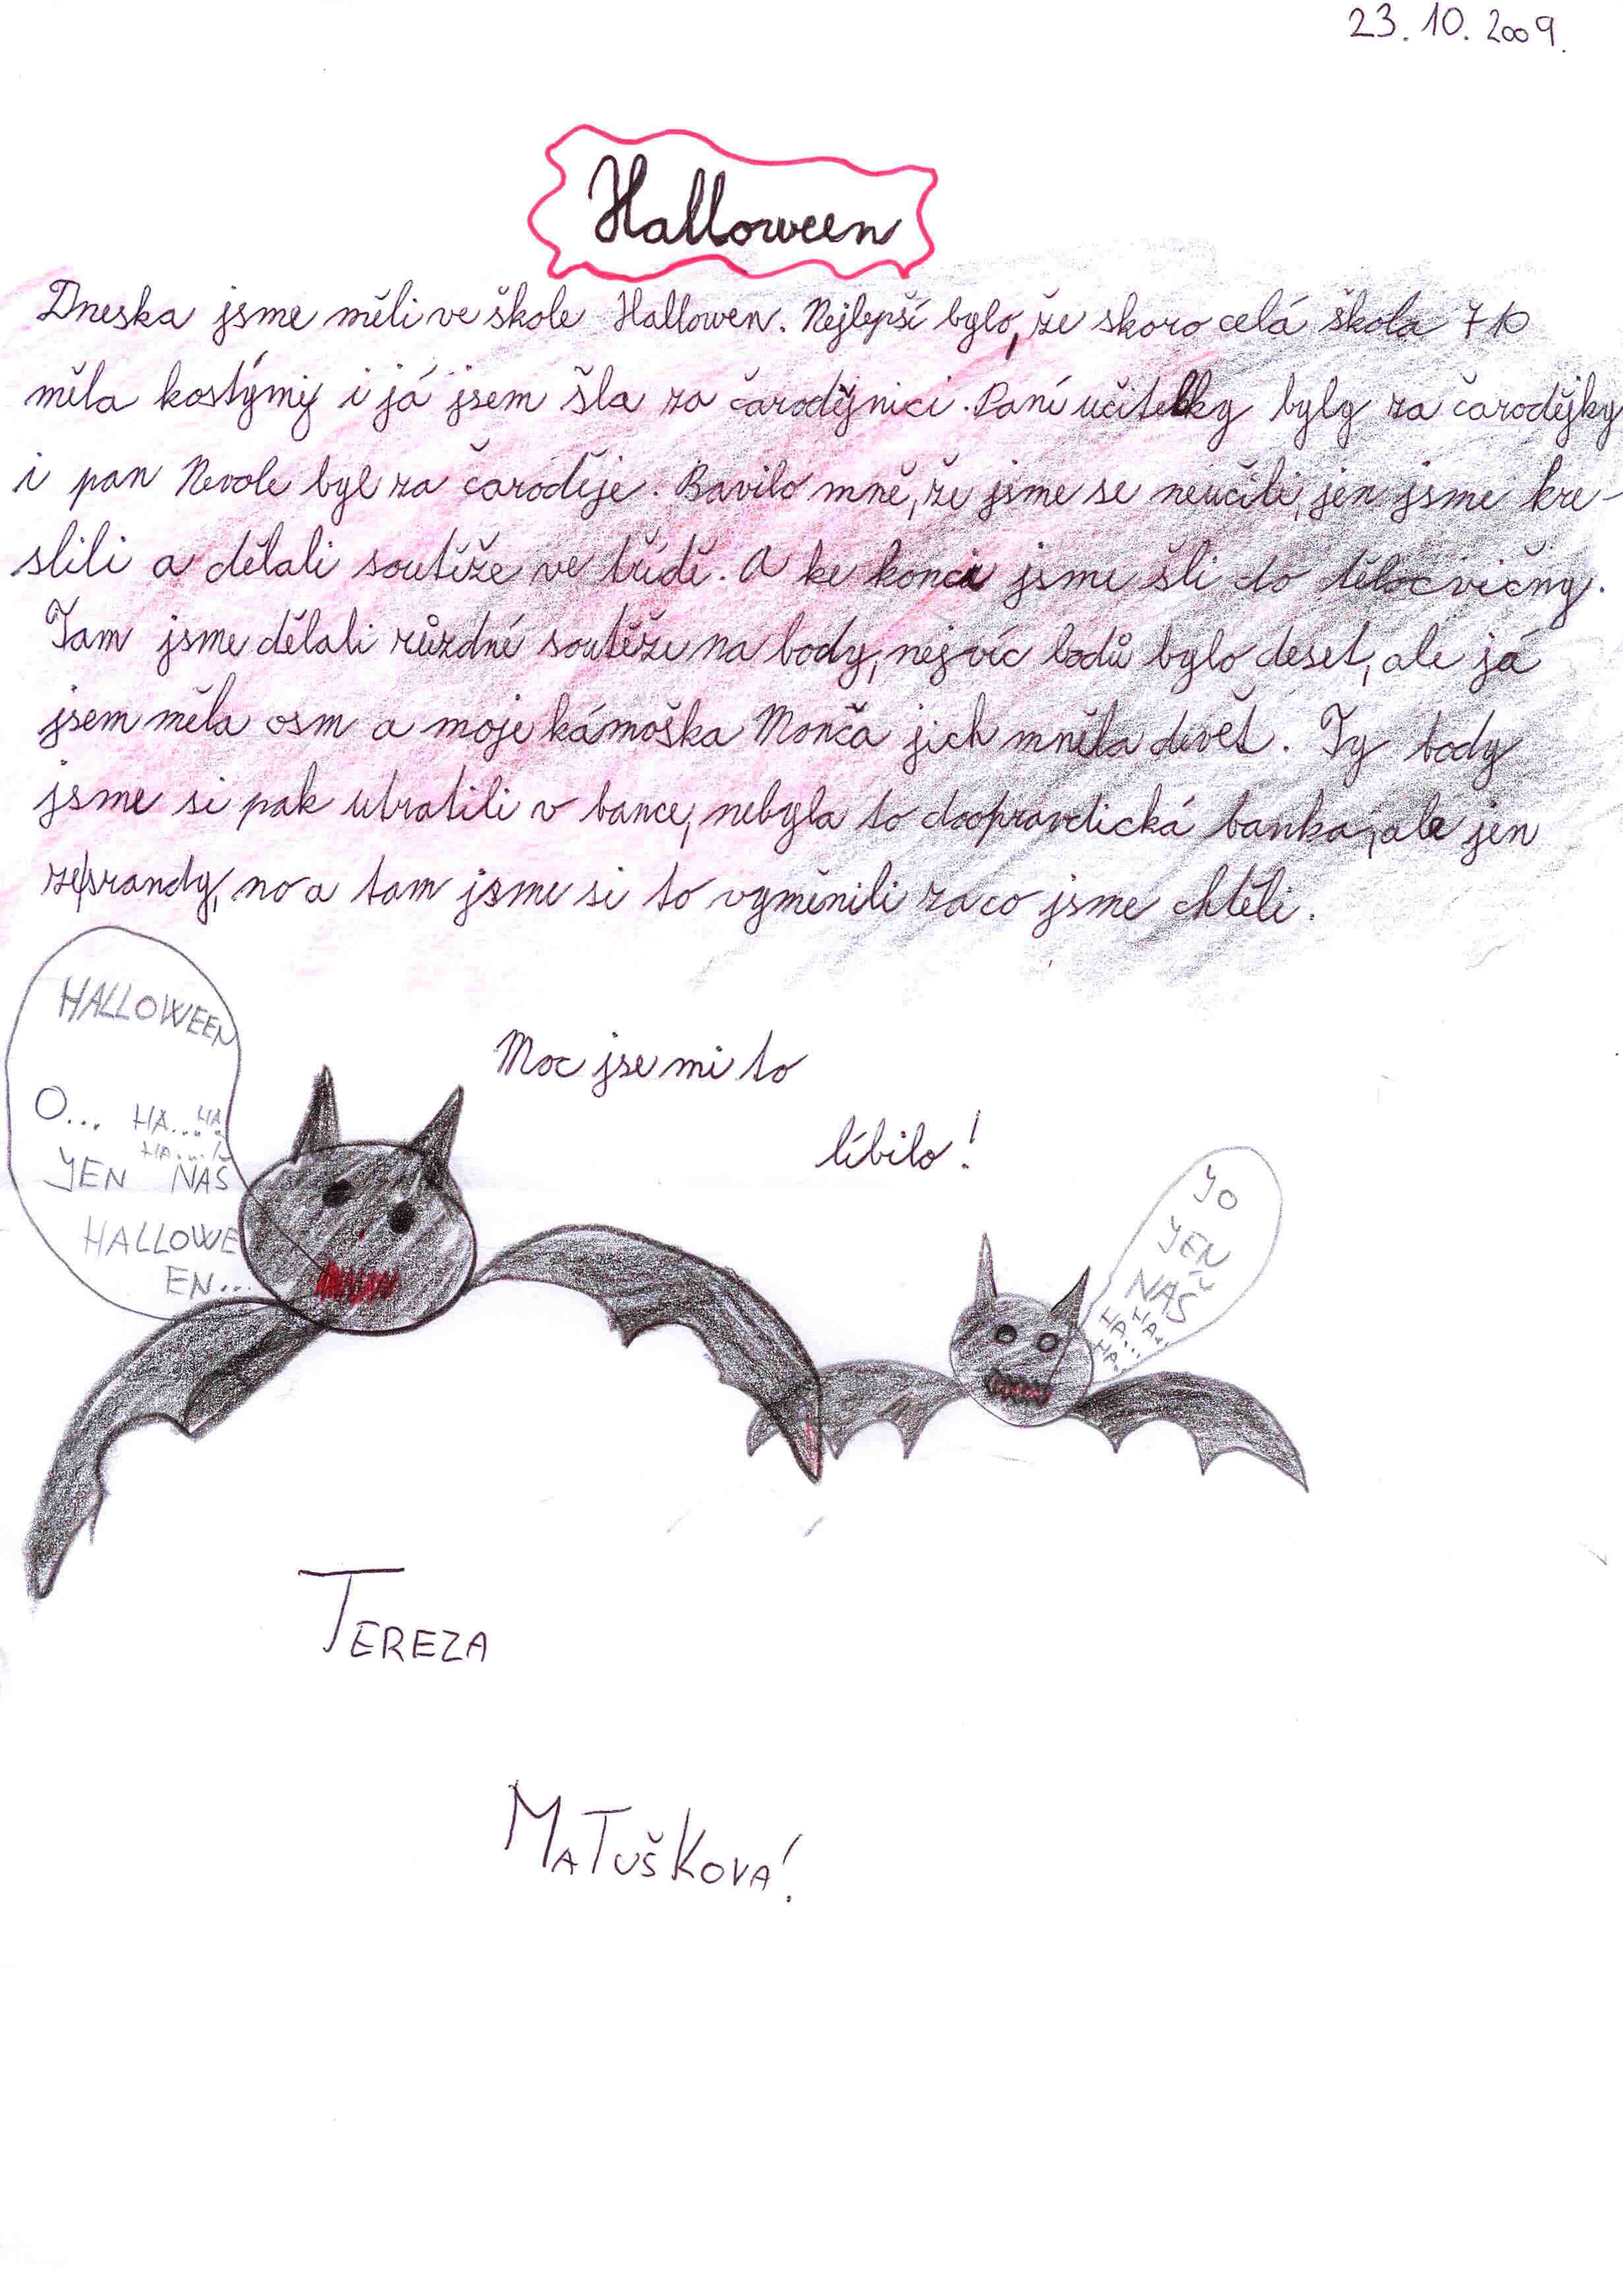 23. 10. 2009.
Halloween
Dneska jsme měli ve škole Hallowen. Nejlepší bylo, že skoro celá škola
měla kostýmy i já jsem šla za čarodějnici. Paní učitelky byly za čarodějky
i pan Nevole byl za čaroděje. Bavilo mně, že jsme se neučili, jen jsme kre-
slili a dělali soutěže ve třídě. A ke konci jsme šli do tělocvičny.
Tam jsme dělali růzdné soutěže na body, nejvíc bodů bylo deset, ale já
jsem měla osm a moje kámoška Monča jich mněla devět. Ty body
jsme si pak utratili v bance, nebyla to doopravdická banka, ale jen
ze srandy, no a tam jsme si to vyměnili za co jsme chtěli.
Moc jse mi to
líbilo!
HALLOWEEN
O... HA...HA
HA...
YEN NAŠ
HALLOWE
EN...
YO
YEN
NAŠ
HA...
HA...
HA...
TEREZA
MATUŠKOVA!